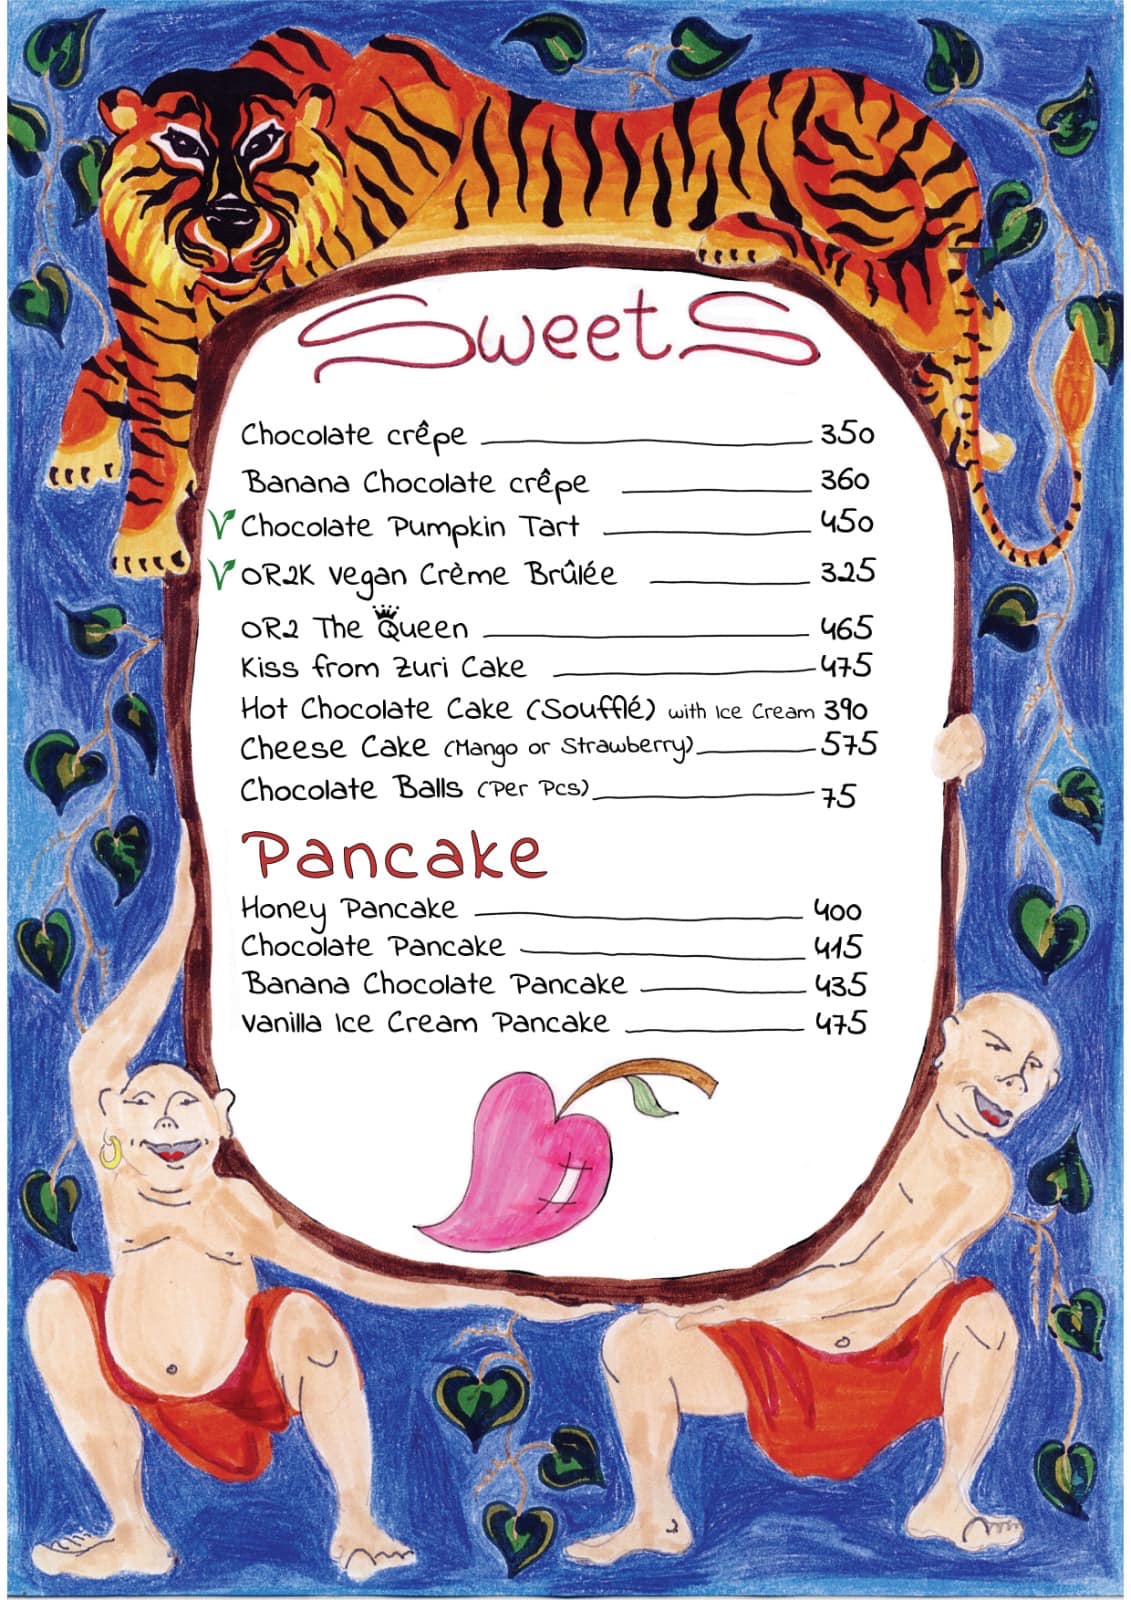 Sweets
Chocolate crêpe 350
Banana Chocolate crêpe 360
V Chocolate Pumpkin Tart 450
V OR2K Vegan Crème Brûlée 325
OR2 The Queen 465
Kiss from Zuri Cake 475
Hot Chocolate Cake (Soufflé) with Ice Cream 390
Cheese Cake (Mango or Strawberry) 575
Chocolate Balls (Per Pcs) 75
Pancake
Honey Pancake 400
Chocolate Pancake 415
Banana Chocolate Pancake 435
Vanilla Ice Cream Pancake 475